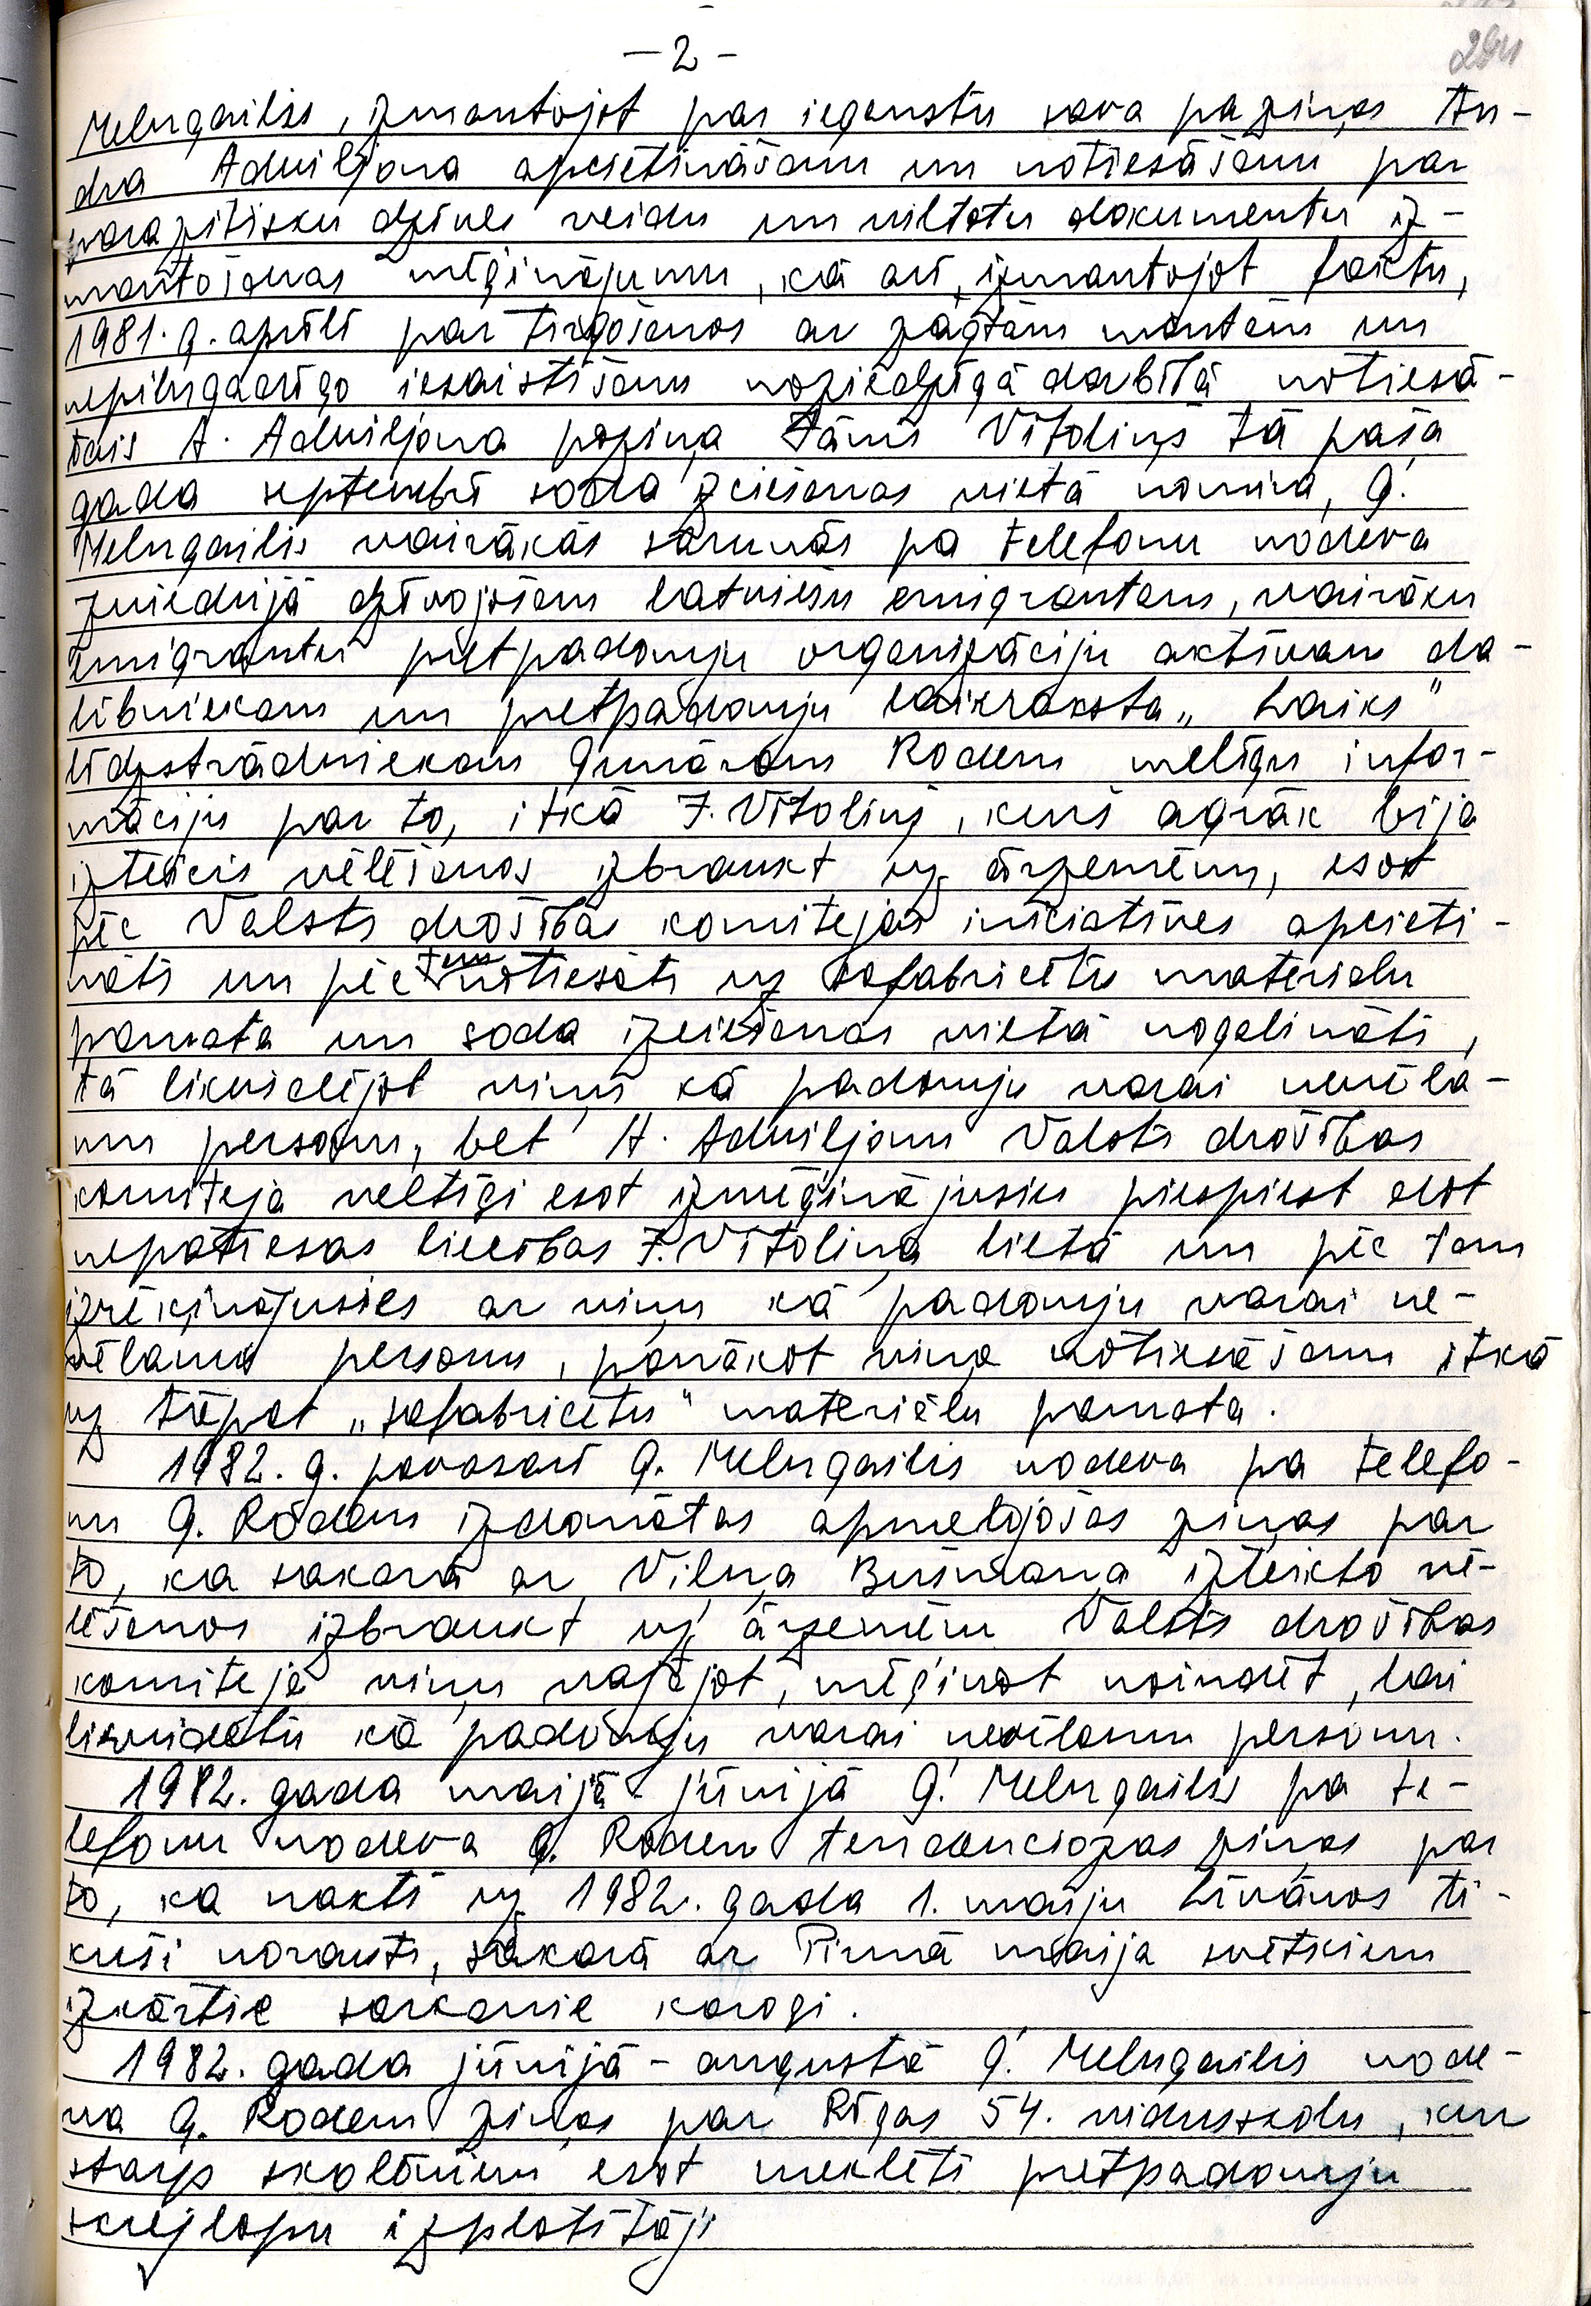 – 2 –
294
Melngailis, izmantojot par ieganstu sava paziņas An-
dra Admiljona apcietināšanu un notiesāšanu par
parazītisku dzīves veidu un viltotu dokumentu iz-
mantošanas mēģinājumu, kā arī, izmantojot faktu,
1981. g. aprīlī par tirgošanos ar zagtām mantām un
nepilngadīgo iesaistīšanu noziedzīgā darbībā notiesā-
tais A. Admiljona paziņa Jānis Vītoliņš tā paša
gada septembrī soda izciešanas vietā nomira, G.
Melngailis vairākās sarunās pa telefonu nodeva
Zviedrijā dzīvojošam latviešu emigrantam, vairāku
emigrantu pretpadomju organizāciju aktīvam da-
lībniekam un pretpadomju laikraksta „Laiks"
līdzstrādniekam Gunāram Rodem melīgu infor-
māciju par to, itkā J. Vītoliņš, kurš agrāk bija
izteicis vēlēšanos izbraukt uz ārzemēm, esot
pēc Valsts drošības komitejas iniciatīves apcieti-
nāts un pēc tam notiesāts uz safabricētu materiālu
pamata un soda izciešanas vietā nogalināts,
tā likvidējot viņu kā padomju varai nevēla-
mu personu, bet A. Admiljonu Valsts drošības
komiteja veltīgi esot izmēģinājusies piespiest dot
nepatiesas liecības J. Vītoliņa lietā un pēc tam
izrēķinājusies ar viņu kā padomju varai ne-
vēlamu personu, panākot viņa notiesāšanu itkā
uz tāpat „safabricētu" materiālu pamata.
1982. g. pavasarī G. Melngailis nodeva pa telefo-
nu G. Rodem izdomātas apmelojošas ziņas par
to, ka sakarā ar Viļņa Bušmaņa izteikto vē-
lēšanos izbraukt uz ārzemēm Valsts drošības
komiteja viņu vajājot, mēģinot noindēt, lai
likvidētu kā padomju varai nevēlamu personu.
1982. gada maijā – jūnijā G. Melngailis pa te-
lefonu nodeva G. Rodem tendenciozas ziņas par
to, ka naktī uz 1982. gada 1. maiju Līvānos ti-
kuši norauti, sakarā ar Pirmā maija svētkiem
izkārtie sarkanie karogi.
1982. gada jūnijā – augustā G. Melngailis node-
va G. Rodem ziņas par Rīgas 54. vidusskolu, kur
starp skolēniem esot meklēti pretpadomju
skrejlapu izplatītāji